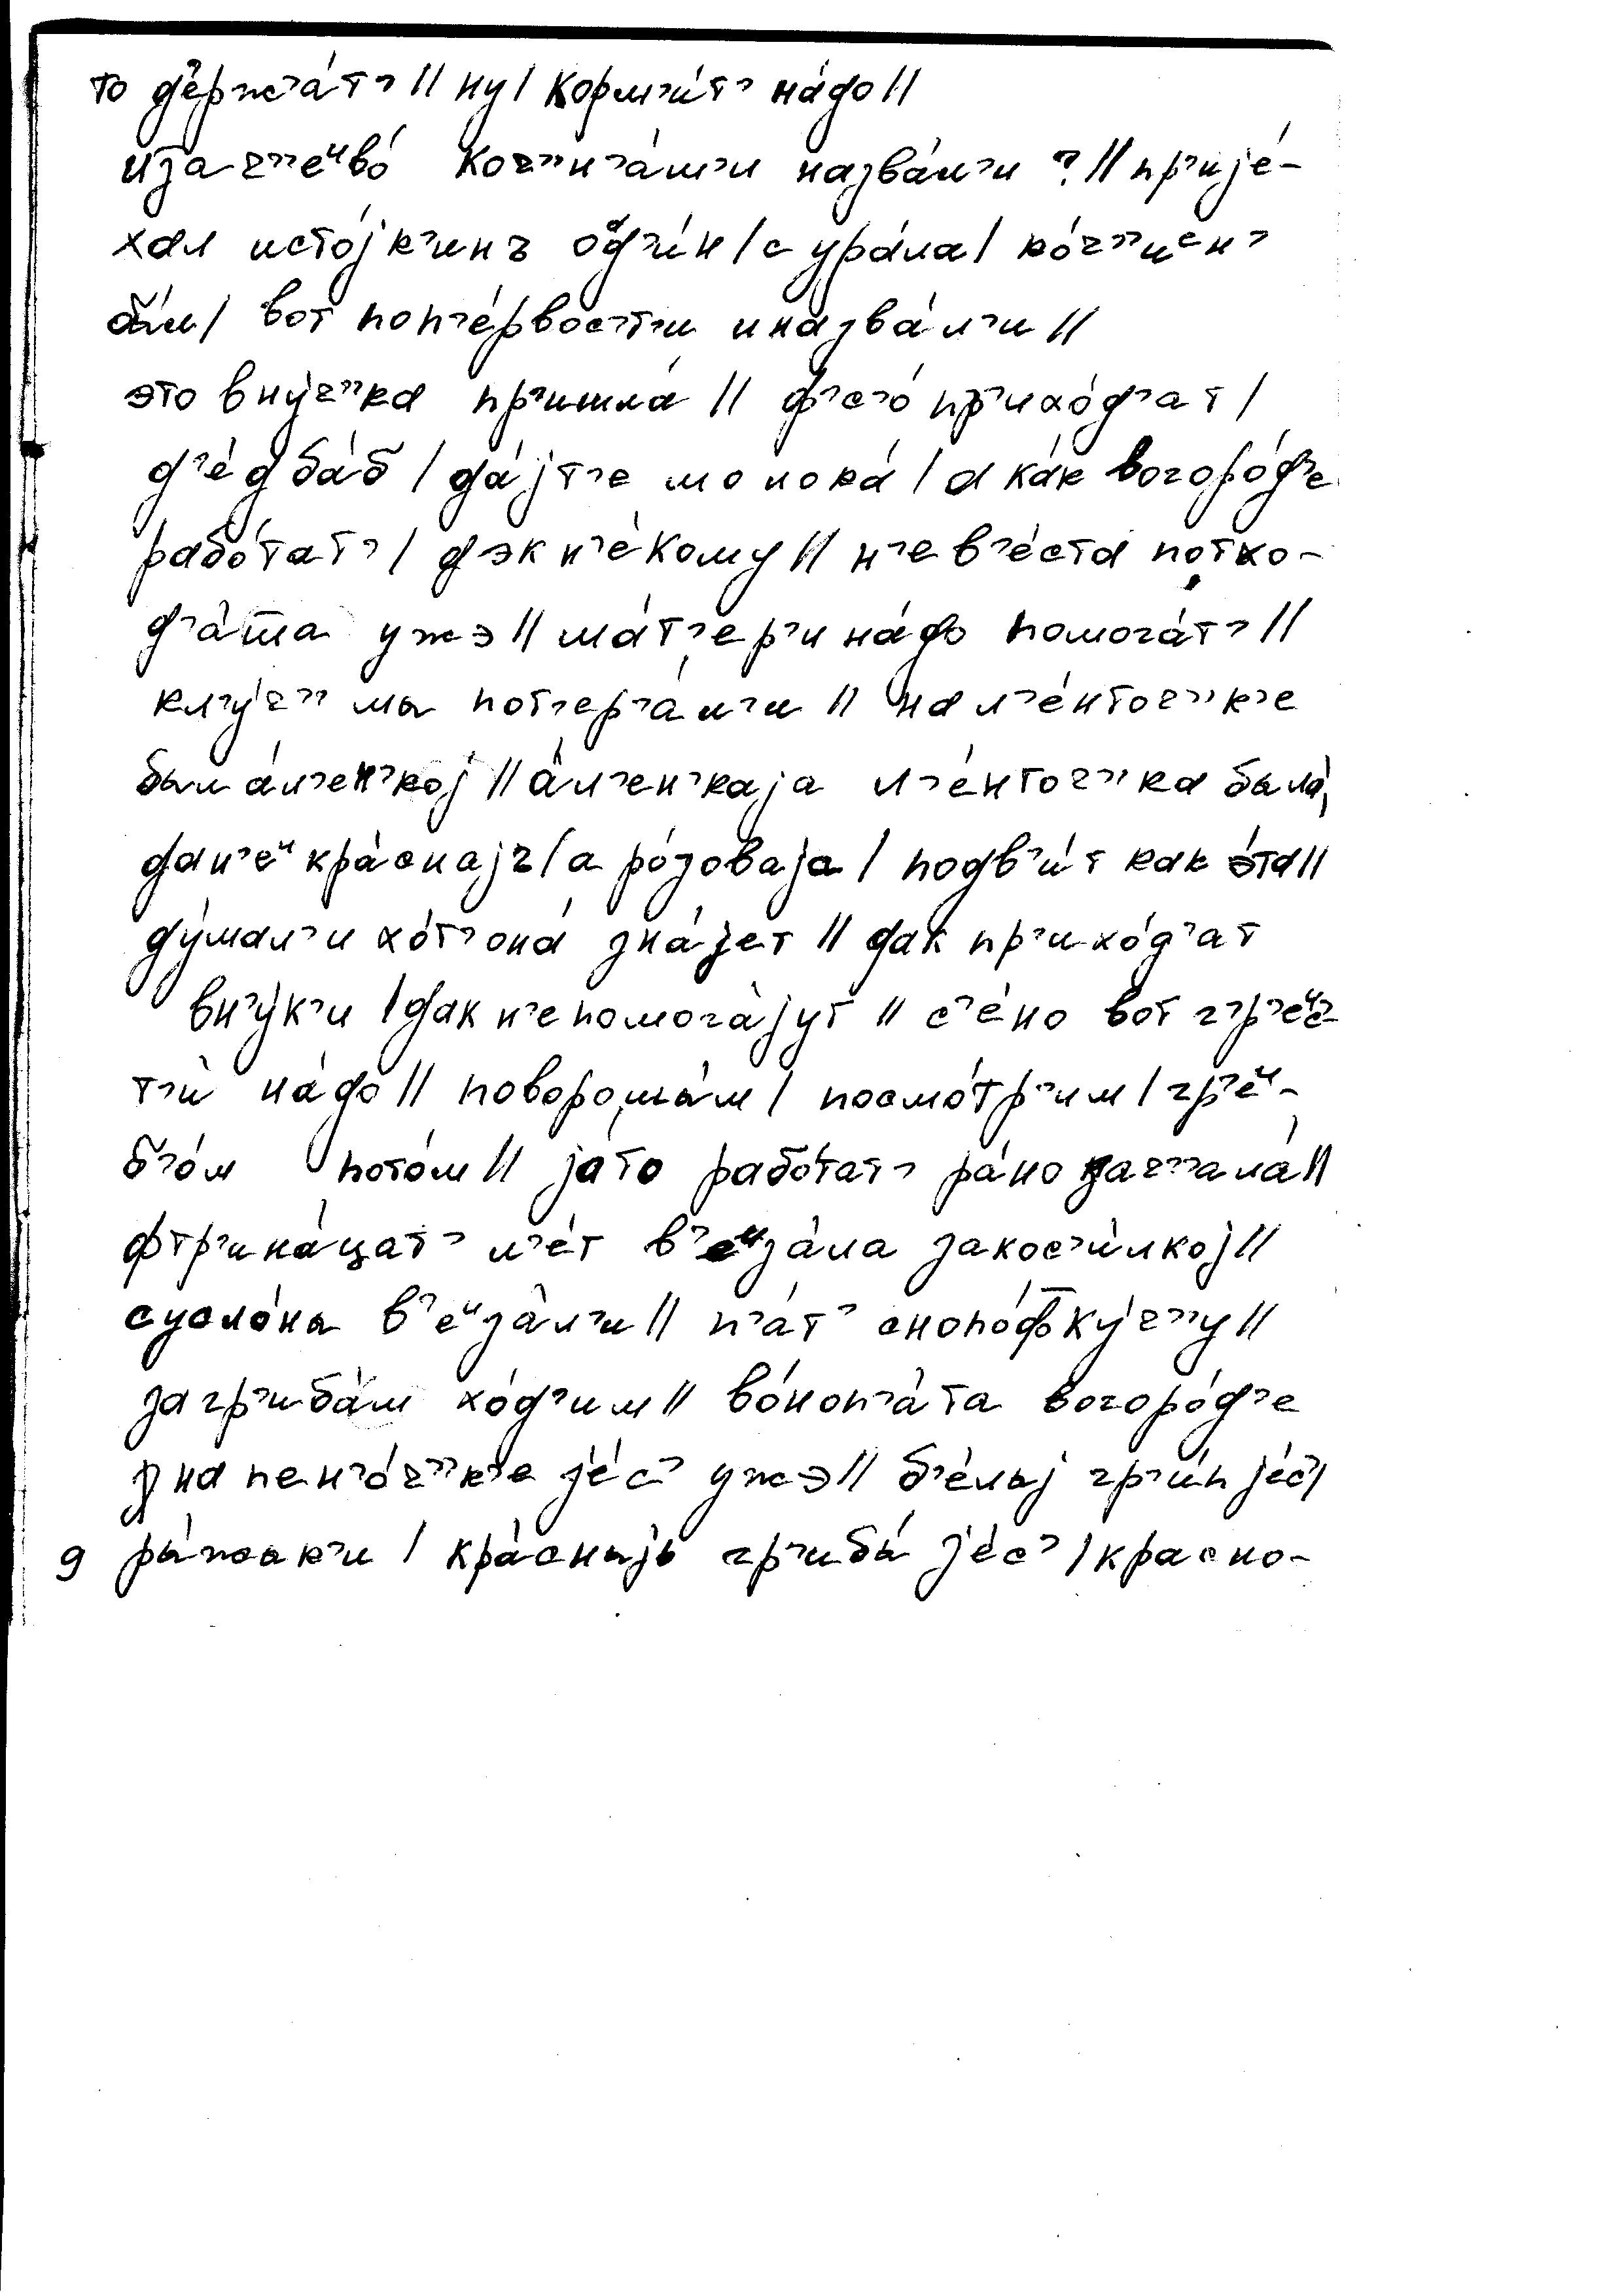 то д'ержа́т' // ну / корм'и́т' на́до //
иза ч''еиво́ коч''н'а́м'и назва́л'и ? // пр'ије́-
хал истојк'инъ од'и́н / с ура́ла / ко́ч''иен'
бы́л / вот поп'е́рвост'и и назва́л'и //
это вну́ч''ка пр'ишла́ // ф'с'о́ пр'ихо́д'ат /
д'е́д ба́б / да́јт'е молока́ / а ка́к вогоро́д'е
рабо́тат' / дэк н'е́кому // н'ев'е́ста потхо-
д'а́ша ужэ // ма́т'ер'и на́до помога́т' //
кл'у́ч'' мы пот'ер'а́л'и // на л'е́нточ''к'е
был а́л'ен'кој // а́л'ен'каја л'е́нточ''ка была́,
дан'еи кра́снајъ / а ро́зоваја / подв'и́т как э́та //
ду́мал'и хо́т' она́ зна́јет // дак пр'ихо́д'ат
вн'у́к'и / дак н'епомога́јут // с'е́но вот гр'еис-
т'и́ на́до // поворошы́м / посмо́тр'им / гр'еи-
б'о́м пото́м // ја то рабо́тат' ра́но зач''ала́ //
фтр'ина́цат' л'е́т в'еиза́ла за кос'и́лкој //
сусло́ны в'еиза́л'и // п'а́т' снопо́ф ку́ч''у //
за гр'иба́м хо́д'им // во́н оп'а́та вогоро́д'е
на пен'о́ч''к'е је́с' ужэ // б'е́лыј гр'и́п је́с' /
9 ры́жык'и / кра́сныјь гр'ибы́ је́с' / красно-